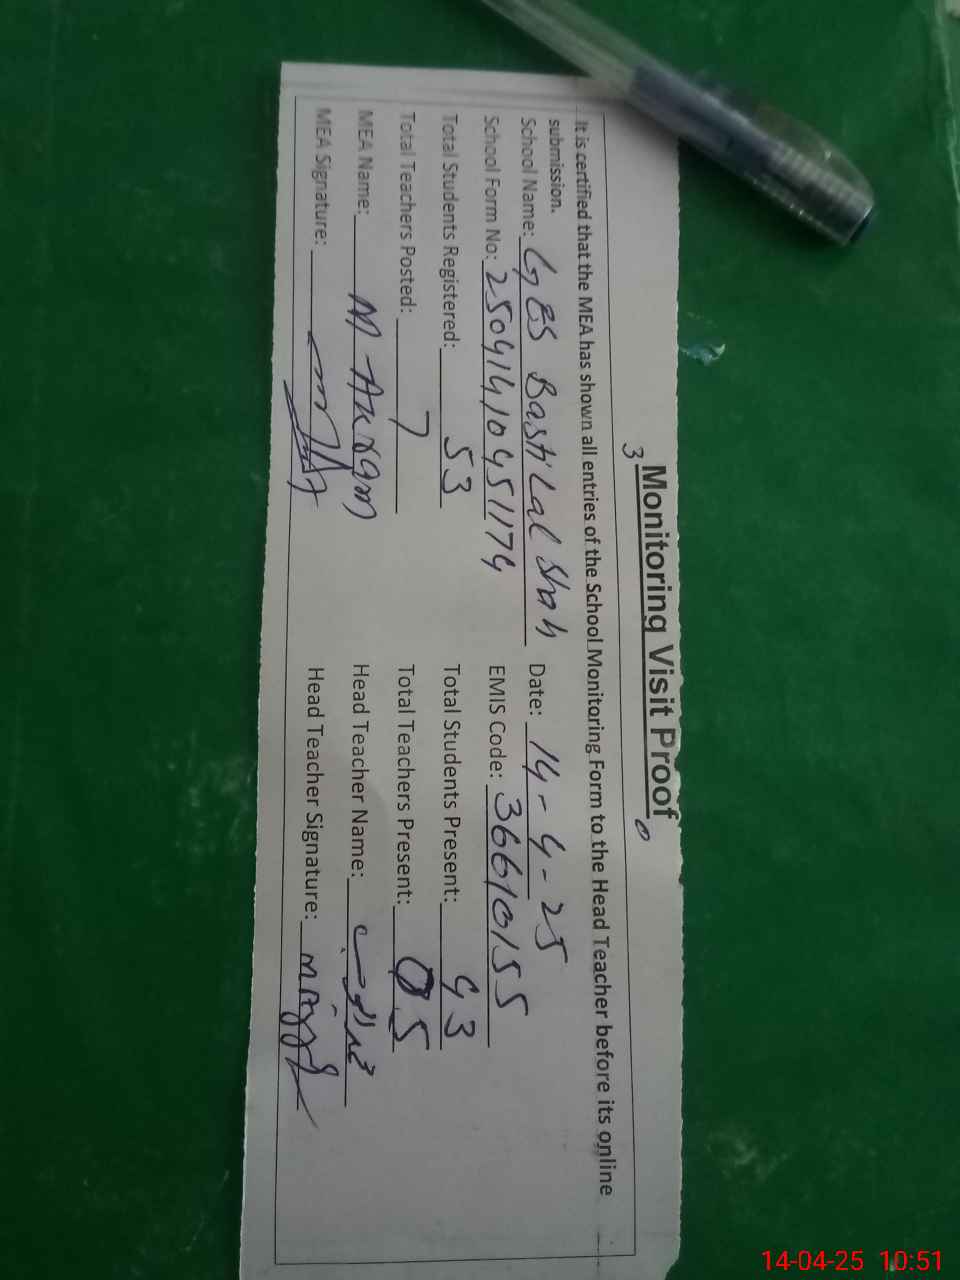 Monitoring Visit Proof
3
0
It is certified that the MEA has shown all entries of the School Monitoring Form to the Head Teacher before its online
submission.
School Name: GES Basti Lal Shah Date: 14-4-25
School Form No: 25041410451174 EMIS Code: 36610155
Total Students Registered: 53 Total Students Present: 43
Total Teachers Posted: 7 Total Teachers Present: 05
MEA Name: M Akram Head Teacher Name:
MEA Signature: Head Teacher Signature:
14-04-25 10:51